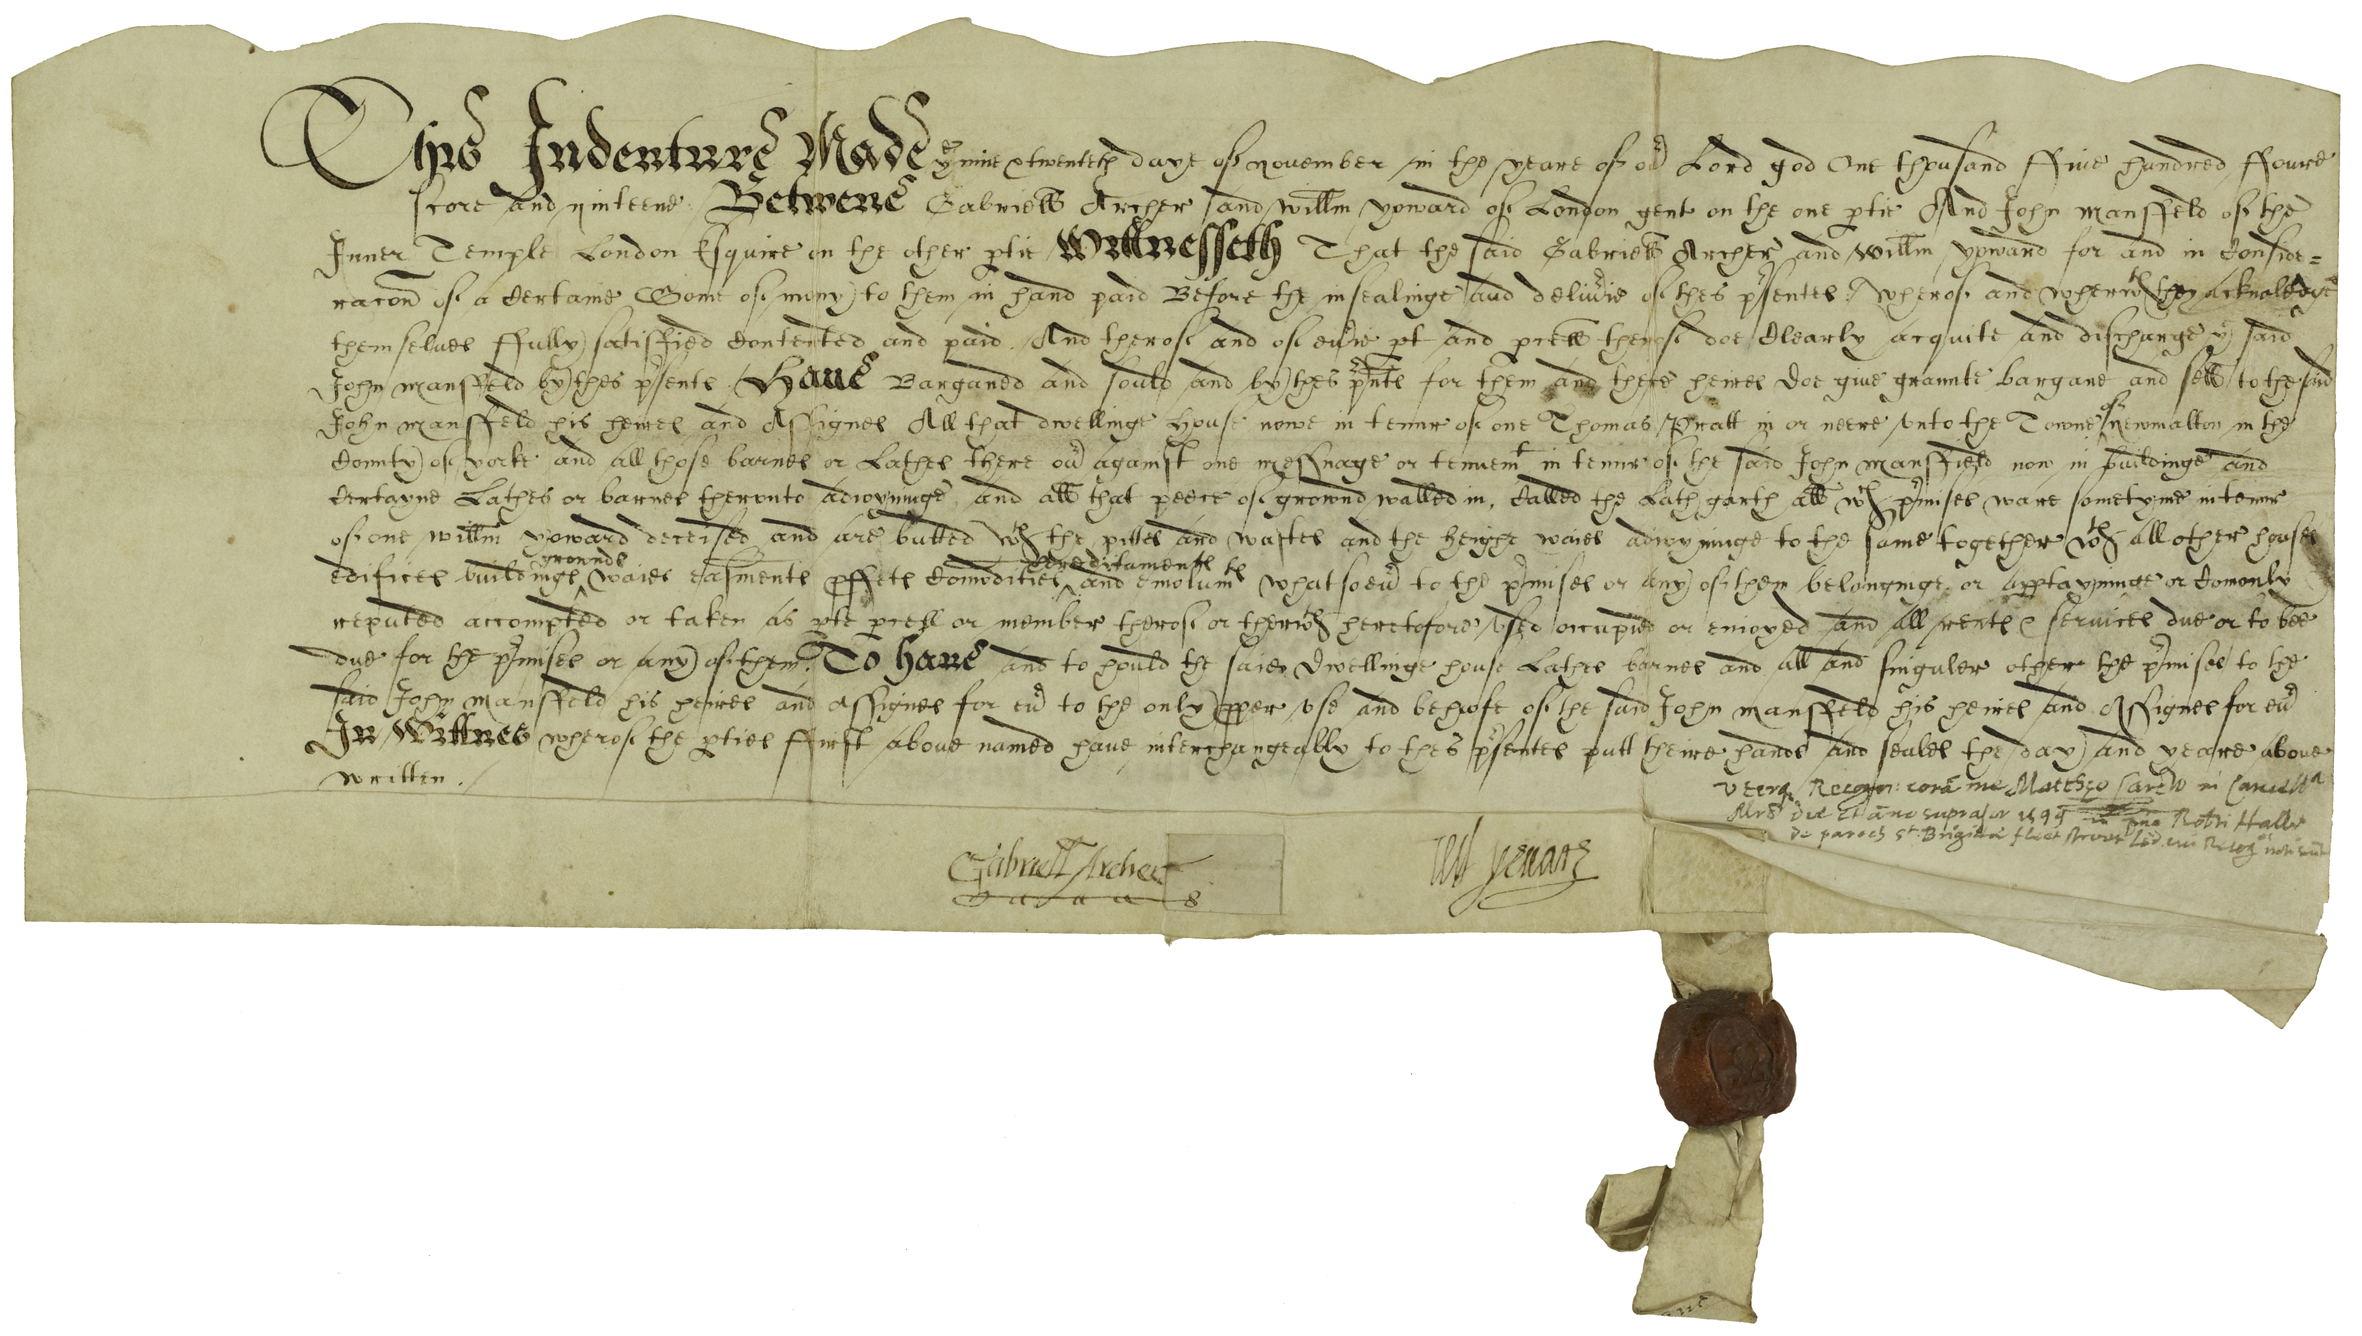 This Indenture Made ye nine & twenteth daye of november in the yeare of or Lord god One thousand ffive hundred ffoure
score and ninteene Betwene Gabriell Archer and willm yoward of London gent on the one ptie And John Mansfeld of the
Inner Temple London Esquire on the other ptie Wittnesseth That the said Gabriell Archer and willm yoward for and in conside=
racon of a certaine Some of mony to them in hand paid Before the insealinge and deliverie of thes psentes wherof and wherwth they acknoledge
themselves ffully satisfied contented and paid And therof and of everie pt and pcell therof doe clearly acquite and discharge ye said
John Mansfeld by thes psents Have Barganed and sould and by thes pnts for them and there heires doe give graunte bargane and sell to the said
John Mansfeld his heires and Assignes All that dwellinge house nowe in tenur of one Thomas Pratt in or neere unto the Towne of newmalton in the
county of yorke and all those barnes or Lathes there over against one messuage or tenemt in tenur of the said John Mansfield now in buildinge and
certayne Lathes or barnes therunto adioyninge and all that peece of grownd walled in, called the Lath garth all wch pmises ware sometyme in tenur
of one willm yoward deceised and are butted wth the pittes and wastes and the heighe waies adioyninge to the same together wth all other houses
edifices buildings grounds waies easments pffets comodities hereditaments and emolumts whatsoever to the pmises or any of them belonginge or apptayninge or comonly
reputed accompted or taken as pte pcell or member therof or therwth heretofore used occupied or enioyed and all rents & services due or to bee
due for the pmises or any of them. To have and to hould the saied dwellinge house Lathes barnes and all and singuler other the pmises to the
said John Mansfeld his heires and Assignes for ever to the only pper use and behofe of the said John Mansfeld his heires and Assignes for ever
In Wittnes wherof the pties ffirst above named have interchangeally to thes psentes putt theire hands and seales the day and yeare above
written.
Recogn: cora me Mattheo Carew in Cancell
die et ano supra 1599 Robti Halle
de paroch St Brigitte fleet street
Gabriell Archer
Will yewarde